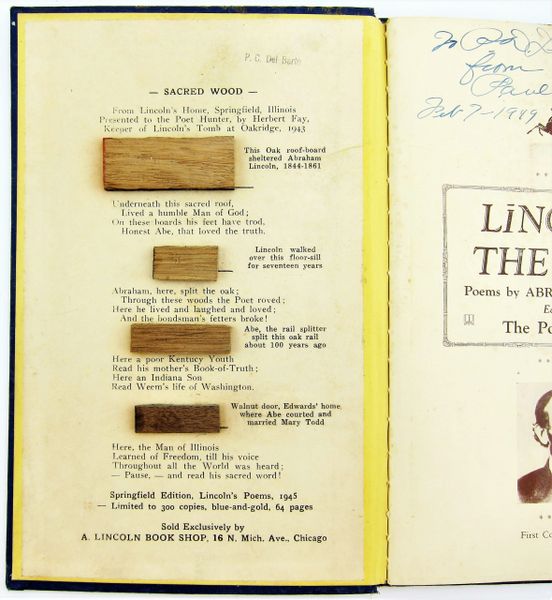 P. C. Del Barto
— SACRED WOOD —
From Lincoln's Home, Springfield, Illinois
Presented to the Poet Hunter, by Herbert Fay,
Keeper of Lincoln's Tomb at Oakridge, 1943
This Oak roof-board
sheltered Abraham
Lincoln, 1844-1861
Underneath this sacred roof,
Lived a humble Man of God;
On these boards his feet have trod,
Honest Abe, that loved the truth.
Lincoln walked
over this floor-sill
for seventeen years
Abraham, here, split the oak;
Through these woods the Poet roved;
Here he lived and laughed and loved;
And the bondsman's fetters broke!
Abe, the rail splitter
split this oak rail
about 100 years ago
Here a poor Kentucy Youth
Read his mother's Book-of-Truth;
Here an Indiana Son
Read Weem's life of Washington.
Walnut door, Edwards' home
where Abe courted and
married Mary Todd
Here, the Man of Illinois
Learned of Freedom, till his voice
Throughout all the World was heard;
— Pause, — and read his sacred word!
Springfield Edition, Lincoln's Poems, 1945
— Limited to 300 copies, blue-and-gold, 64 pages
Sold Exclusively by
A. LINCOLN BOOK SHOP, 16 N. Mich. Ave., Chicago
To
from
Paul
Feb 7-1949
LINC
THE
Poems by ABR
Ed
The Po
First Co